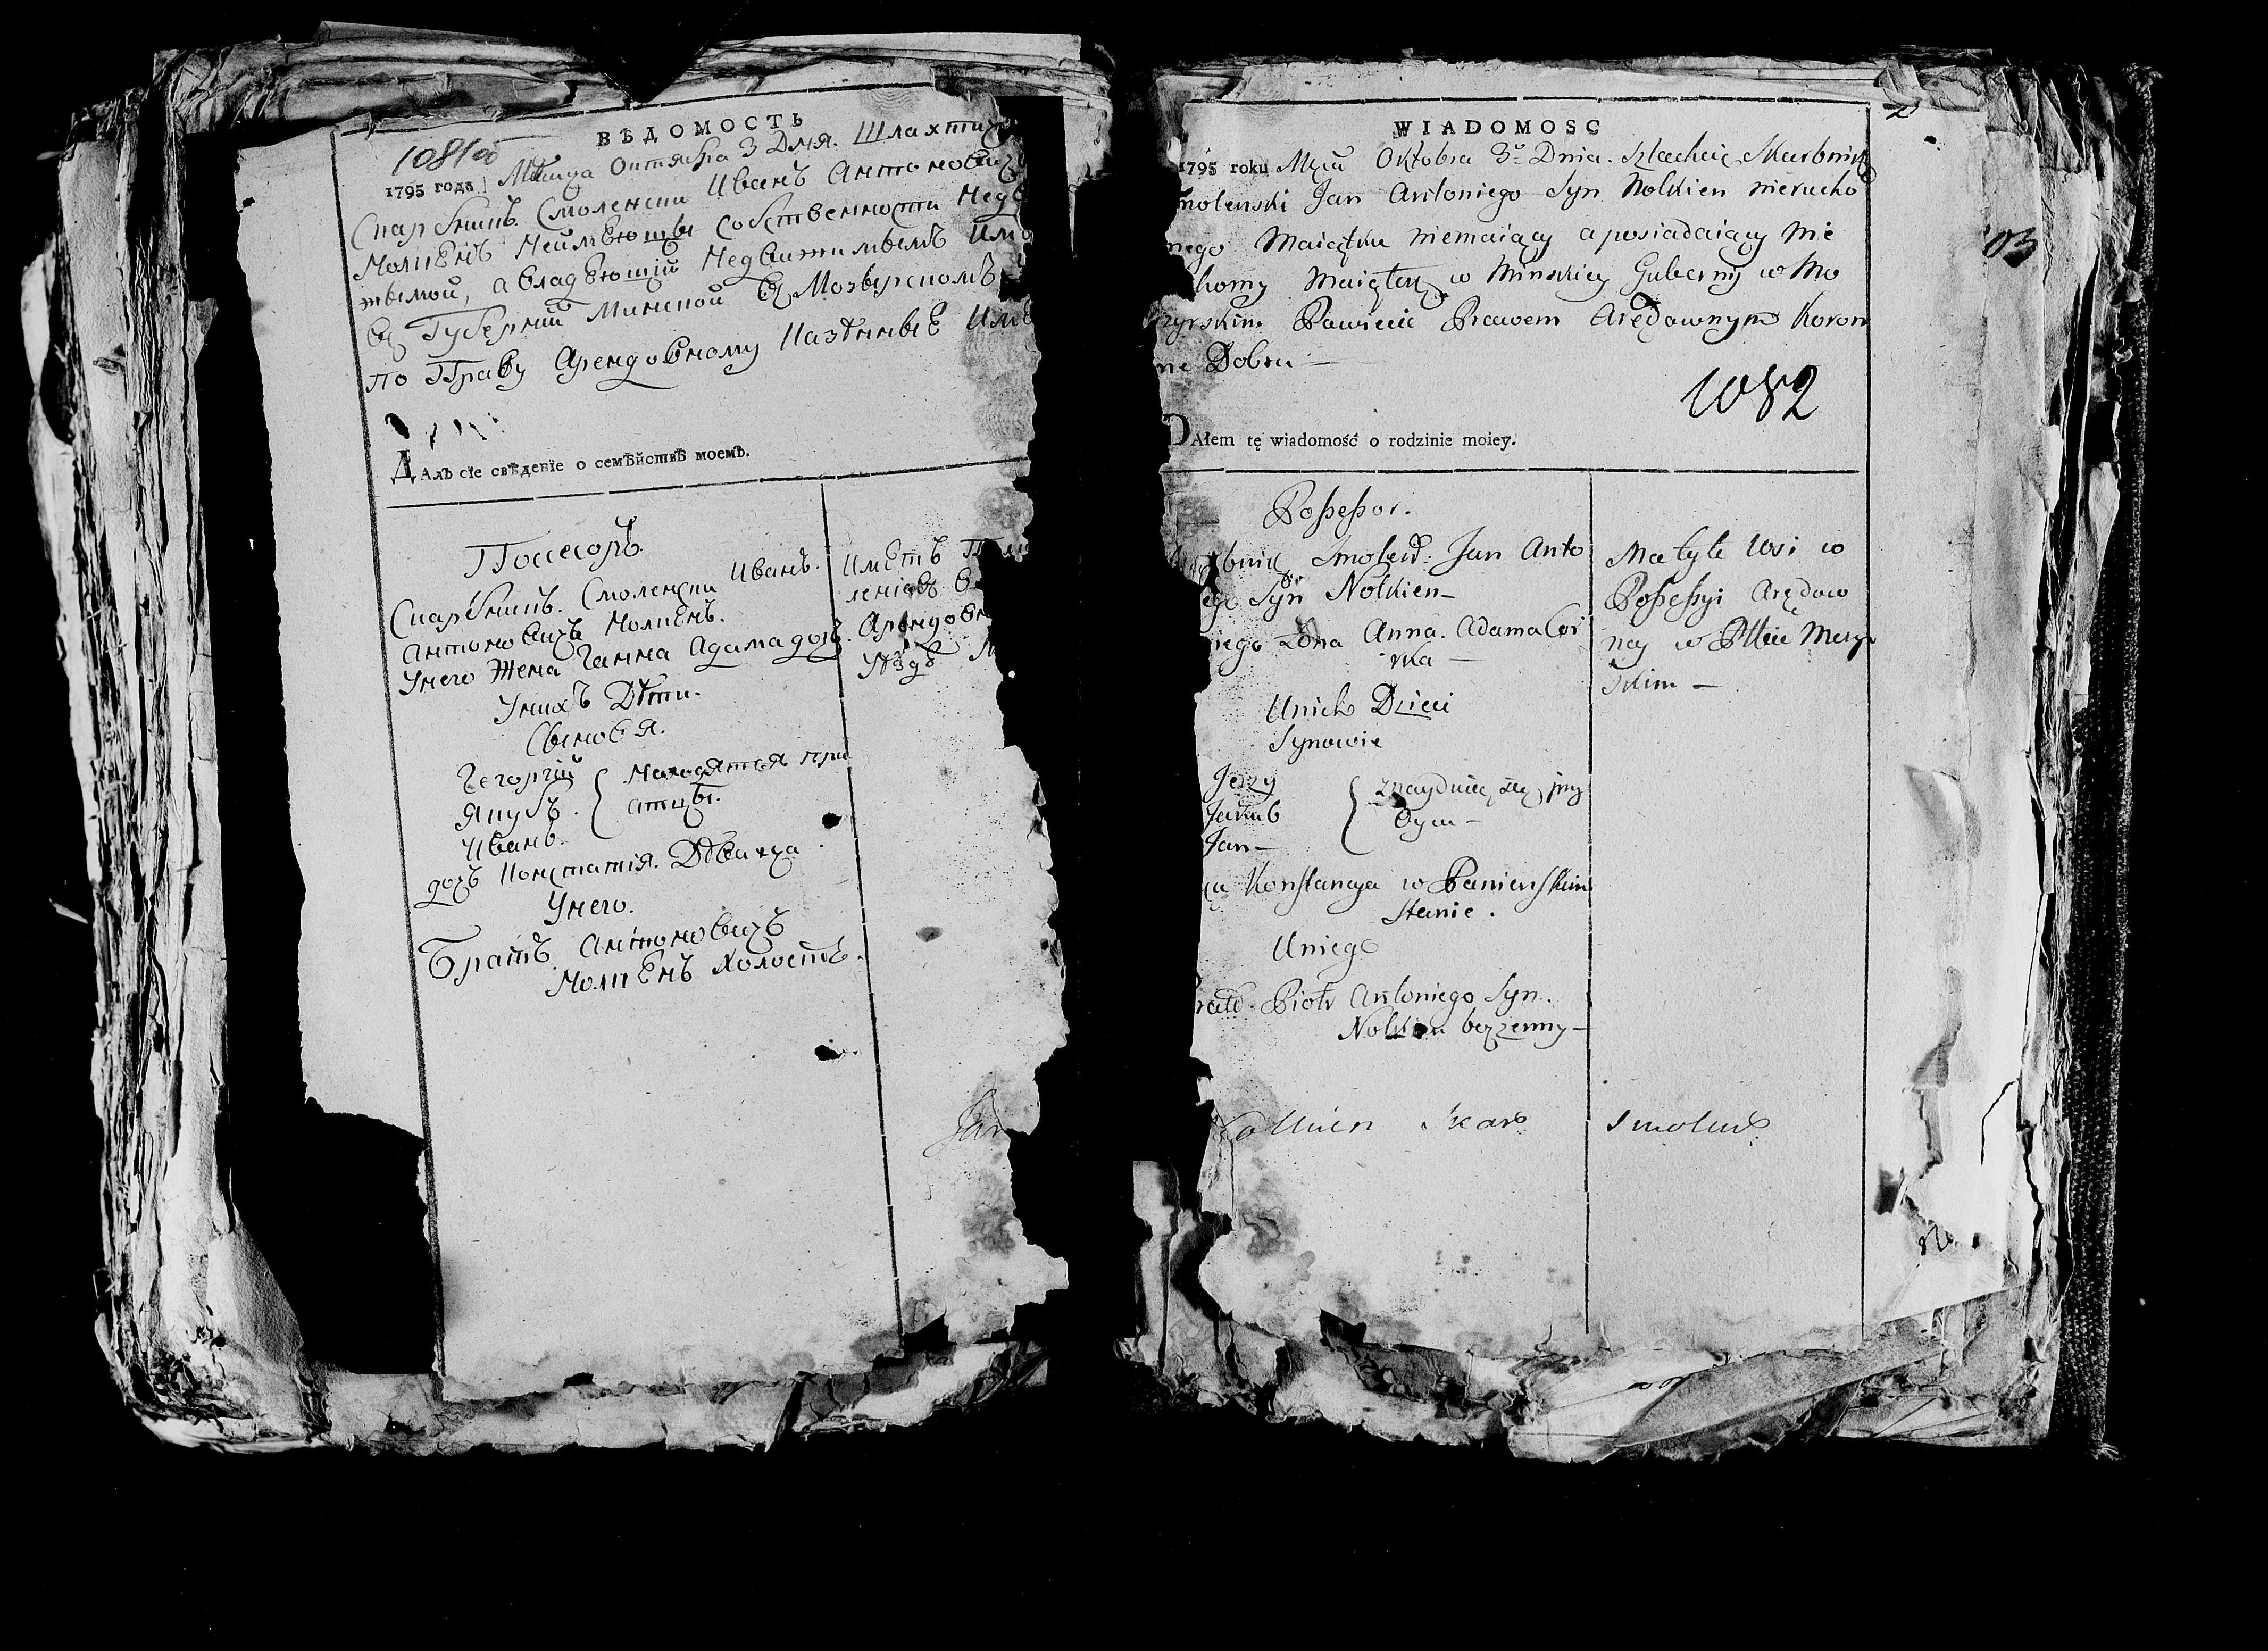 ВѢДОМОСТЬ
1795 года Мѣсяца Октября 3 Дня. Шляхтич
Скарбникъ Смоленски Иванъ Антоновичъ
Нолкѣнъ Неимѣющы собственности Недв
жимой, а владѣющій Недвижимымъ Имѣ
въ Губерніи Минской въ Мозырскомъ
по Праву Арендовному Казѣнные Имѣ
ДАлъ сіе свѣденіе о семѣйствѣ моемъ.
Посесоръ
Скарбникъ. Смоленски Иванъ.
Антоновичъ Нолкѣнъ.
Унего Жена Ганна Адама дочъ.
Унихъ Дѣти.
Сыновья.
Гегоргій
Якубъ.
Иванъ.
Находятся при
отцы.
дочъ Констанія. Дѣвица
Унего.
Братъ Антоновичъ
Нолкѣнъ Холостъ.
Имѣтъ
ленія въ
Арендовн
Уѣздѣ
Jan
WIADOMOSC
1795 roku Mẹca Oktobra 3º Dnia. Szlachcic Skarbnik
molenski Jan Antoniego Syn Nolkien nierucho
mego Maiątku niemaiący a posiadaiący nie
homy Maiątek w Minskiey Gubernij w Mo
zyrskim Powiecie Prawem Arędownym Koron
ne Dobra —
1082
DAłem tę wiadomość o rodzinie moiey.
Possessor.
bnik Smoleń: Jan Anto
ego Syn Nolkien —
niego Żona Anna. Adama Cor
rka —
Unich Dzieci
Synowie
Jerzy
Jakub
Jan —
znayduią się przy
Oycu —
ka Konstancya w Panienskim
stanie.
Uniego
Brat Piotr Antoniego Syn.
Nolkien bezzenny —
Ma tyle wsi w
Possessyi Arędow
ney w Pttcie Mozyr
skim —
Nolkien Skar Smolens